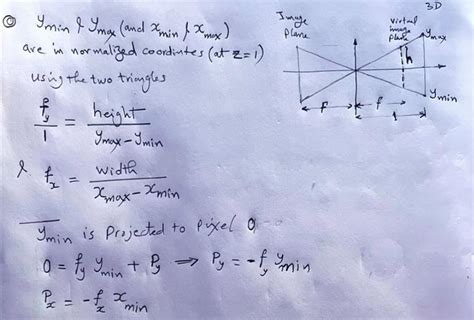 © Ymin & Ymax (and xmin & xmax)
are in normalized coordintes (at z=1)
using the two triangles
fy/1 = height/(Ymax-Ymin)
& fx = width/(xmax-xmin)
Ymin is Projected to Pixel 0
0 = fy Ymin + Py ⇒ Py = -fy Ymin
Px = -fx xmin
3D
Image
Plane
Virtual
image
Plane
Ymax
h
Ymin
f
f
1